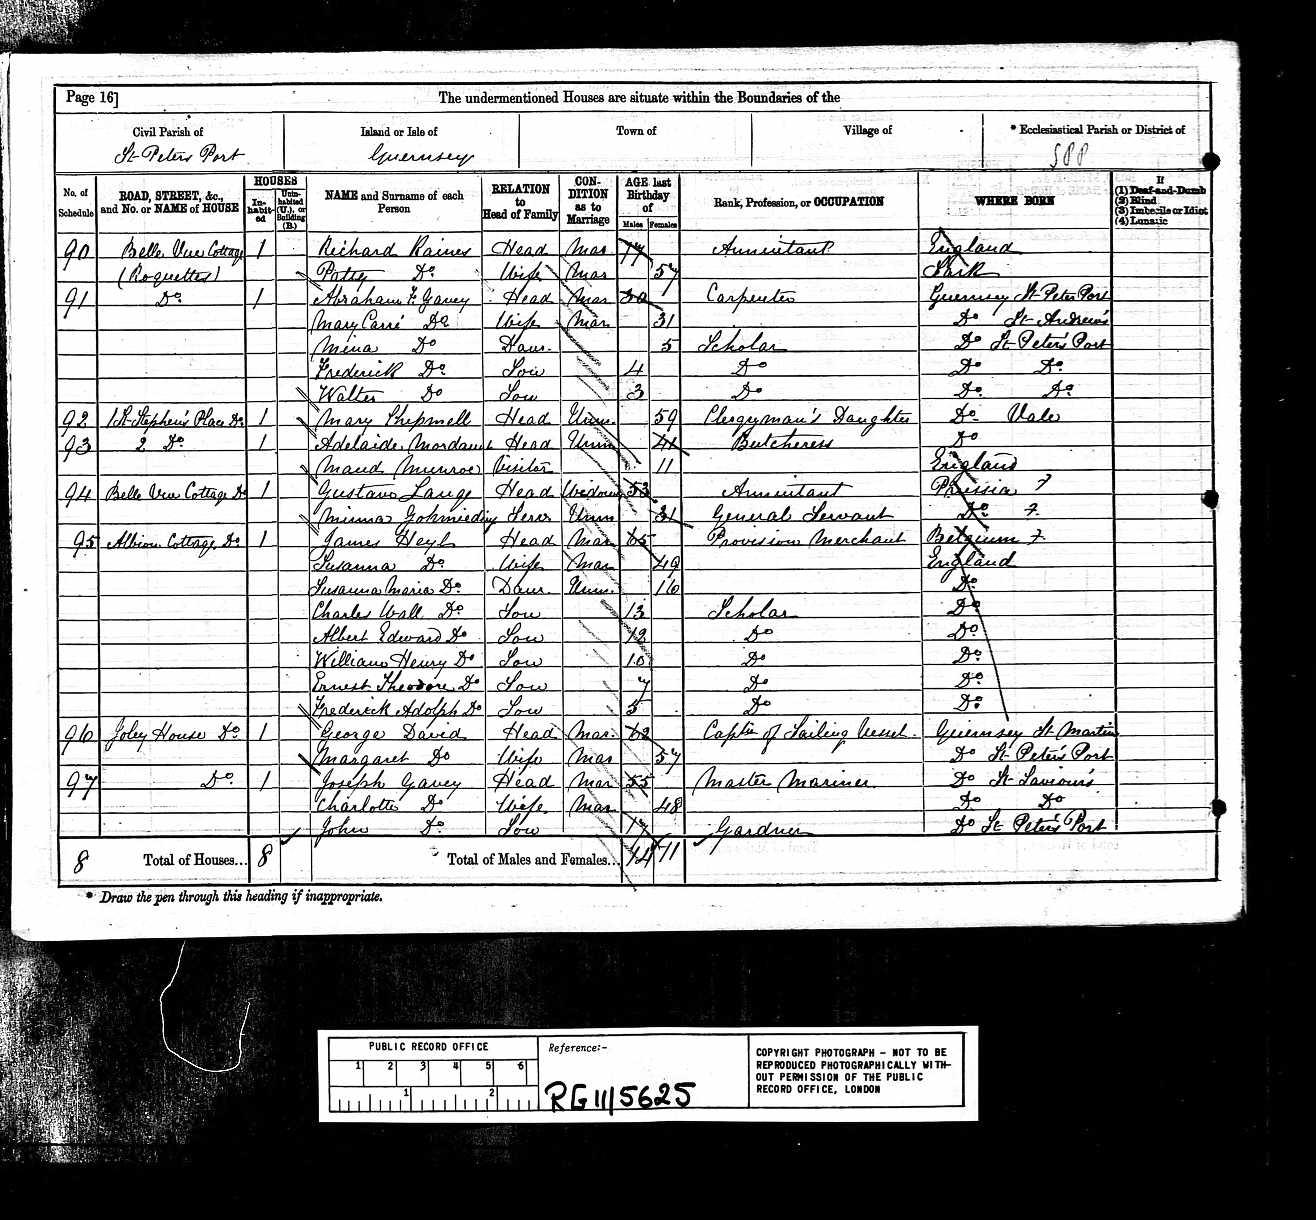 Page 16]
The undermentioned Houses are situate within the Boundaries of the
Civil Parish of
Island or Isle of
Town of
Village of
* Ecclesiastical Parish or District of
St Peters Port
Guernsey
SPP
No. of Schedule
ROAD, STREET, &c., and No. or NAME of HOUSE
HOUSES
In-habit-ed
Unin-habited (U.), or Building (B.)
NAME and Surname of each Person
RELATION to Head of Family
CON-DITION as to Marriage
AGE last Birthday of
Males
Females
Rank, Profession, or OCCUPATION
WHERE BORN
If
(1) Deaf-and-Dumb
(2) Blind
(3) Imbecile or Idiot
(4) Lunatic
90 Belle Vue Cottage 1 Richard Raines Head Mar Annuitant England
(Roquettes) Patty Do Wife Mar 57 Sark
91 Do 1 Abraham F. Gavey Head Mar 30 Carpenter Guernsey St Peter Port
Mary Carré Do Wife Mar 31 Do St Andrew's
Mina Do Daur. 5 Scholar Do St Peter's Port
Frederick Do Son 4 Do Do Do
Walter Do Son 3 Do Do Do
92 1 St Stephen's Place Do 1 Mary Chepmell Head Unm. 59 Clergyman's Daughter Do Vale
93 2 Do 1 Adelaide Mordaunt Head Unm 41 Butcheress Do
Maud Munroe Visitor 11 England
94 Belle Vue Cottage Do 1 Gustave Lange Head Widower 53 Annuitant Prussia F
Minna Serv Unm 31 General Servant Do F
95 Albion Cottage Do 1 James Heyl Head Mar 65 Provision Merchant Belgium F
Susanna Do Wife Mar 49 England
Susanna Maria Do Daur. Unm. 16 Do
Charles Wall Do Son 13 Scholar Do
Albert Edward Do Son 12 Do Do
William Henry Do Son 10 Do Do
Ernest Theodore Do Son 7 Do Do
Frederick Adolph Do Son 5 Do Do
96 Joley House Do 1 George David Head Mar. 62 Captn of Sailing Vessel. Guernsey St Martin
Margaret Do Wife Mar 57 Do St Peter's Port
97 Do 1 Joseph Gavey Head Mar 55 Master Mariner. Do St Saviour's
Charlotte Do Wife Mar 48 Do Do
John Do Son 17 Gardner Do St Peter's Port
8 Total of Houses... 8 Total of Males and Females... 14 11
* Draw the pen through this heading if inappropriate.
PUBLIC RECORD OFFICE
1 2 3 4 5 6
1 2
Reference:-
RG 11/5625
COPYRIGHT PHOTOGRAPH - NOT TO BE
REPRODUCED PHOTOGRAPHICALLY WITH-
OUT PERMISSION OF THE PUBLIC
RECORD OFFICE, LONDON